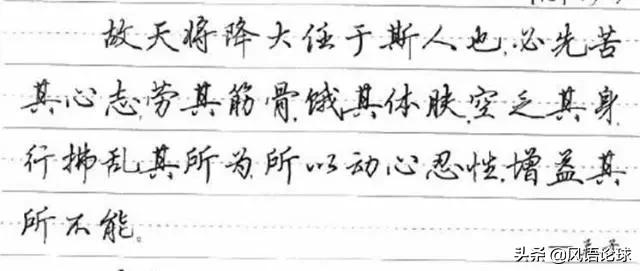 故天将降大任于斯人也,必先苦
其心志,劳其筋骨,饿其体肤,空乏其身,
行拂乱其所为,所以动心忍性,增益其
所不能。
头条 @风语论球